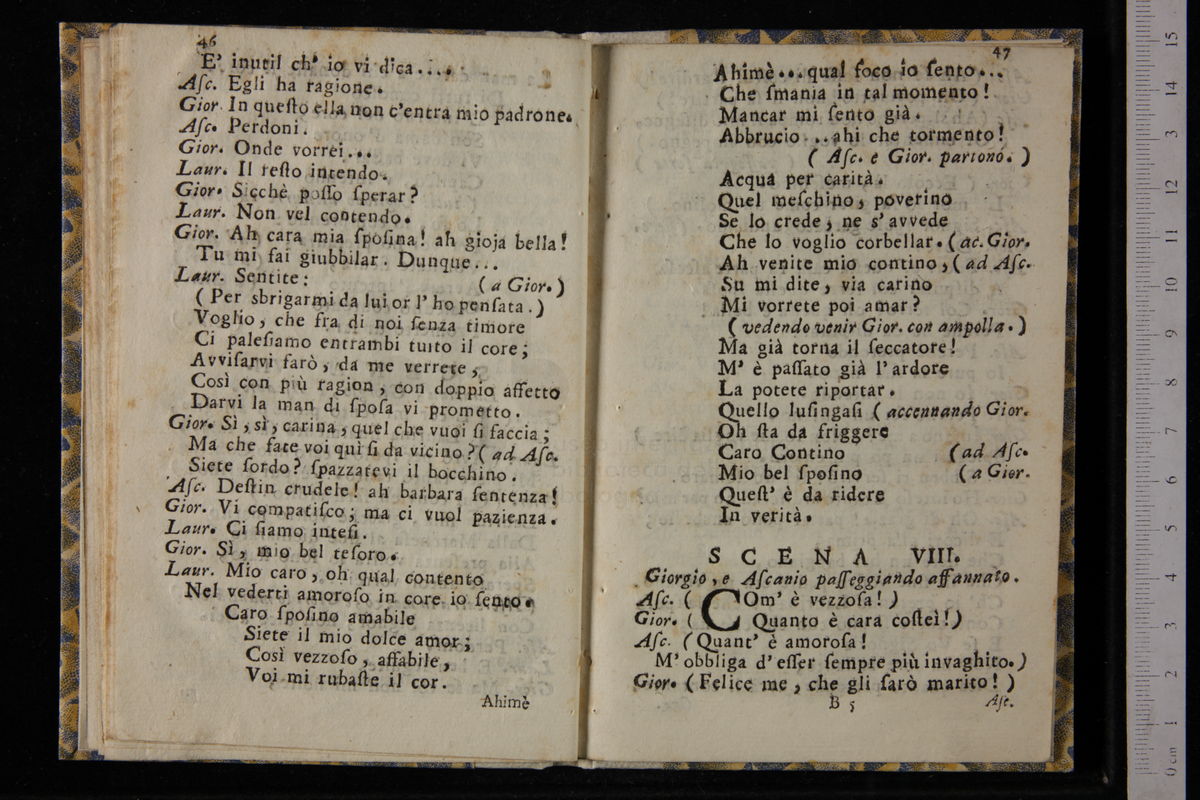 46
E' inutil ch' io vi dica....
Aſc. Egli ha ragione.
Gior. In queſto ella non c'entra mio padrone.
Aſc. Perdoni.
Gior. Onde vorrei...
Laur. Il reſto intendo.
Gior. Sicchè poſſo ſperar?
Laur. Non vel contendo.
Gior. Ah cara mia ſpoſina! ah gioja bella!
Tu mi fai giubbilar. Dunque...
Laur. Sentite: (a Gior.)
(Per sbrigarmi da lui or l' ho penſata.)
Voglio, che fra di noi ſenza timore
Ci paleſiamo entrambi tutto il core;
Avviſarvi farò, da me verrete,
Così con più ragion, con doppio affetto
Darvi la man di ſpoſa vi prometto.
Gior. Sì, sì, carina, quel che vuoi ſi faccia;
Ma che fate voi quì ſi da vicino? (ad Aſc.
Siete ſordo? ſpazzatevi il bocchino.
Aſc. Deſtin crudele! ah barbara ſentenza!
Gior. Vi compatiſco; ma ci vuol pazienza.
Laur. Ci ſiamo inteſi.
Gior. Sì, mio bel teſoro.
Laur. Mio caro, oh qual contento
Nel vederti amoroſo in core io ſento.
Caro ſpoſino amabile
Siete il mio dolce amor;
Così vezzoſo, affabile,
Voi mi rubaſte il cor.
Ahimè
47
Ahimè... qual foco io ſento...
Che ſmania in tal momento!
Mancar mi ſento già.
Abbrucio ... ahi che tormento!
(Aſc. e Gior. partono.)
Acqua per carità.
Quel meſchino, poverino
Se lo crede, ne s' avvede
Che lo voglio corbellar. (ac. Gior.
Ah venite mio contino, (ad Aſc.
Su mi dite, via carino
Mi vorrete poi amar?
(vedendo venir Gior. con ampolla.)
Ma già torna il ſeccatore!
M' è paſſato già l' ardore
La potete riportar.
Quello luſingaſi (accennando Gior.
Oh ſta da friggere
Caro Contino (ad Aſc.
Mio bel ſpoſino (a Gior.
Queſt' è da ridere
In verità.
SCENA VIII.
Giorgio, e Aſcanio paſſeggiando affannato.
Aſc. (COm' è vezzoſa!)
Gior. (Quanto è cara coſtei!)
Aſc. (Quant' è amoroſa!
M' obbliga d' eſſer ſempre più invaghito.)
Gior. (Felice me, che gli ſarò marito!)
B 5 Aſc.
0 cm 1 2 3 4 5 6 7 8 9 10 11 12 13 14 15